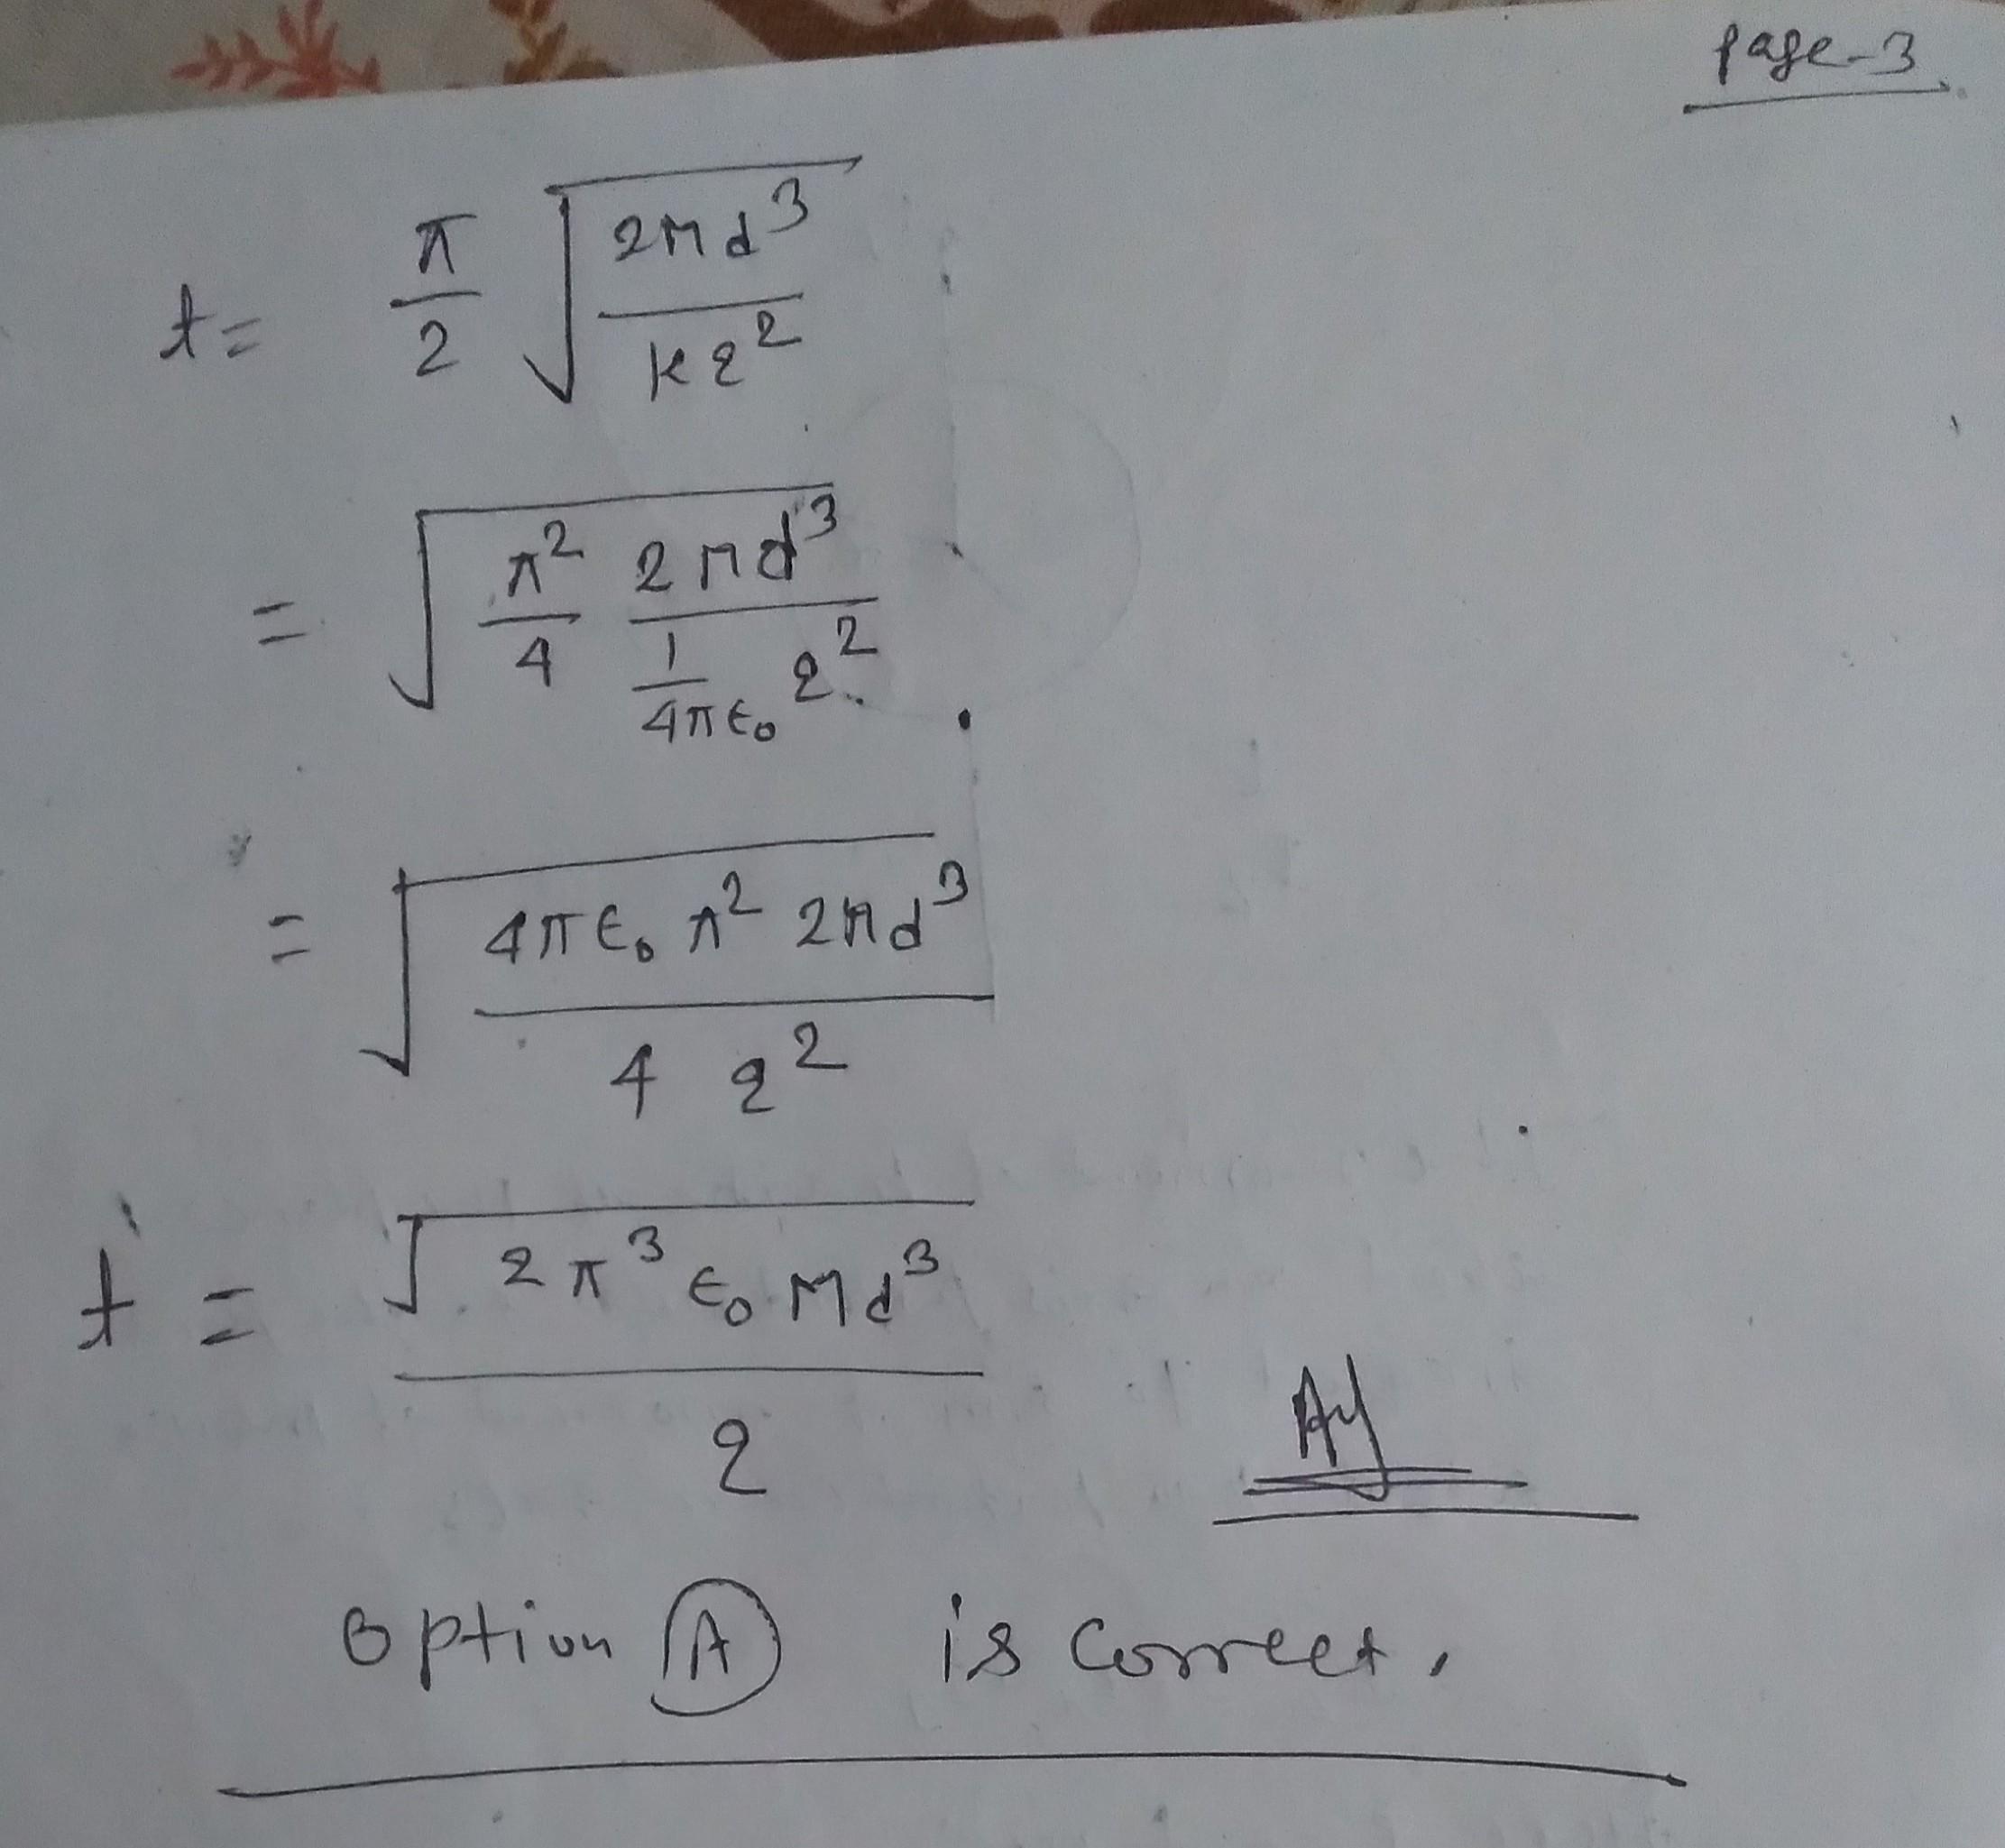 page-3
t = π/2 √(2Md³/kq²)
= √(π²/4 2Md³/(1/4πϵ₀ q²)).
= √(4πϵ₀ π² 2Md³/4 q²)
t = √(2π³ ϵ₀ Md³)/q
Option (A) is correct.